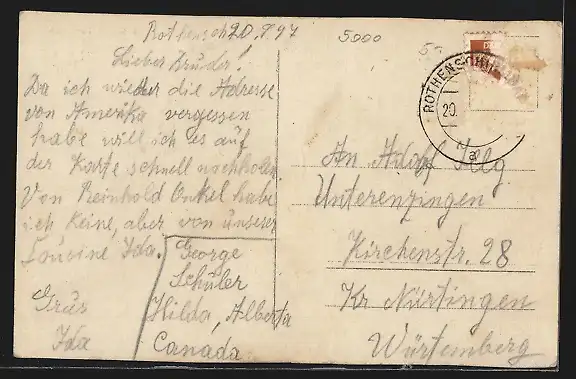 Rothensch 20.8.47
5000
5.-
Lieber Bruder!
Da ich wieder die Adresse
von Amerika vergessen
habe will ich es auf
der Karte schnell nachholen.
Von Reinhold Onkel habe
ich keine, aber von unserer
Cousine Ida.
George
Schuler
Hilda, Alberta
Canada
Grus
Ida
ROTHENSCHIRMBACH
20.
a
An Adolf Ilg
Unterenzingen
Kirchenstr. 28
Kr Nürtingen
Würtemberg